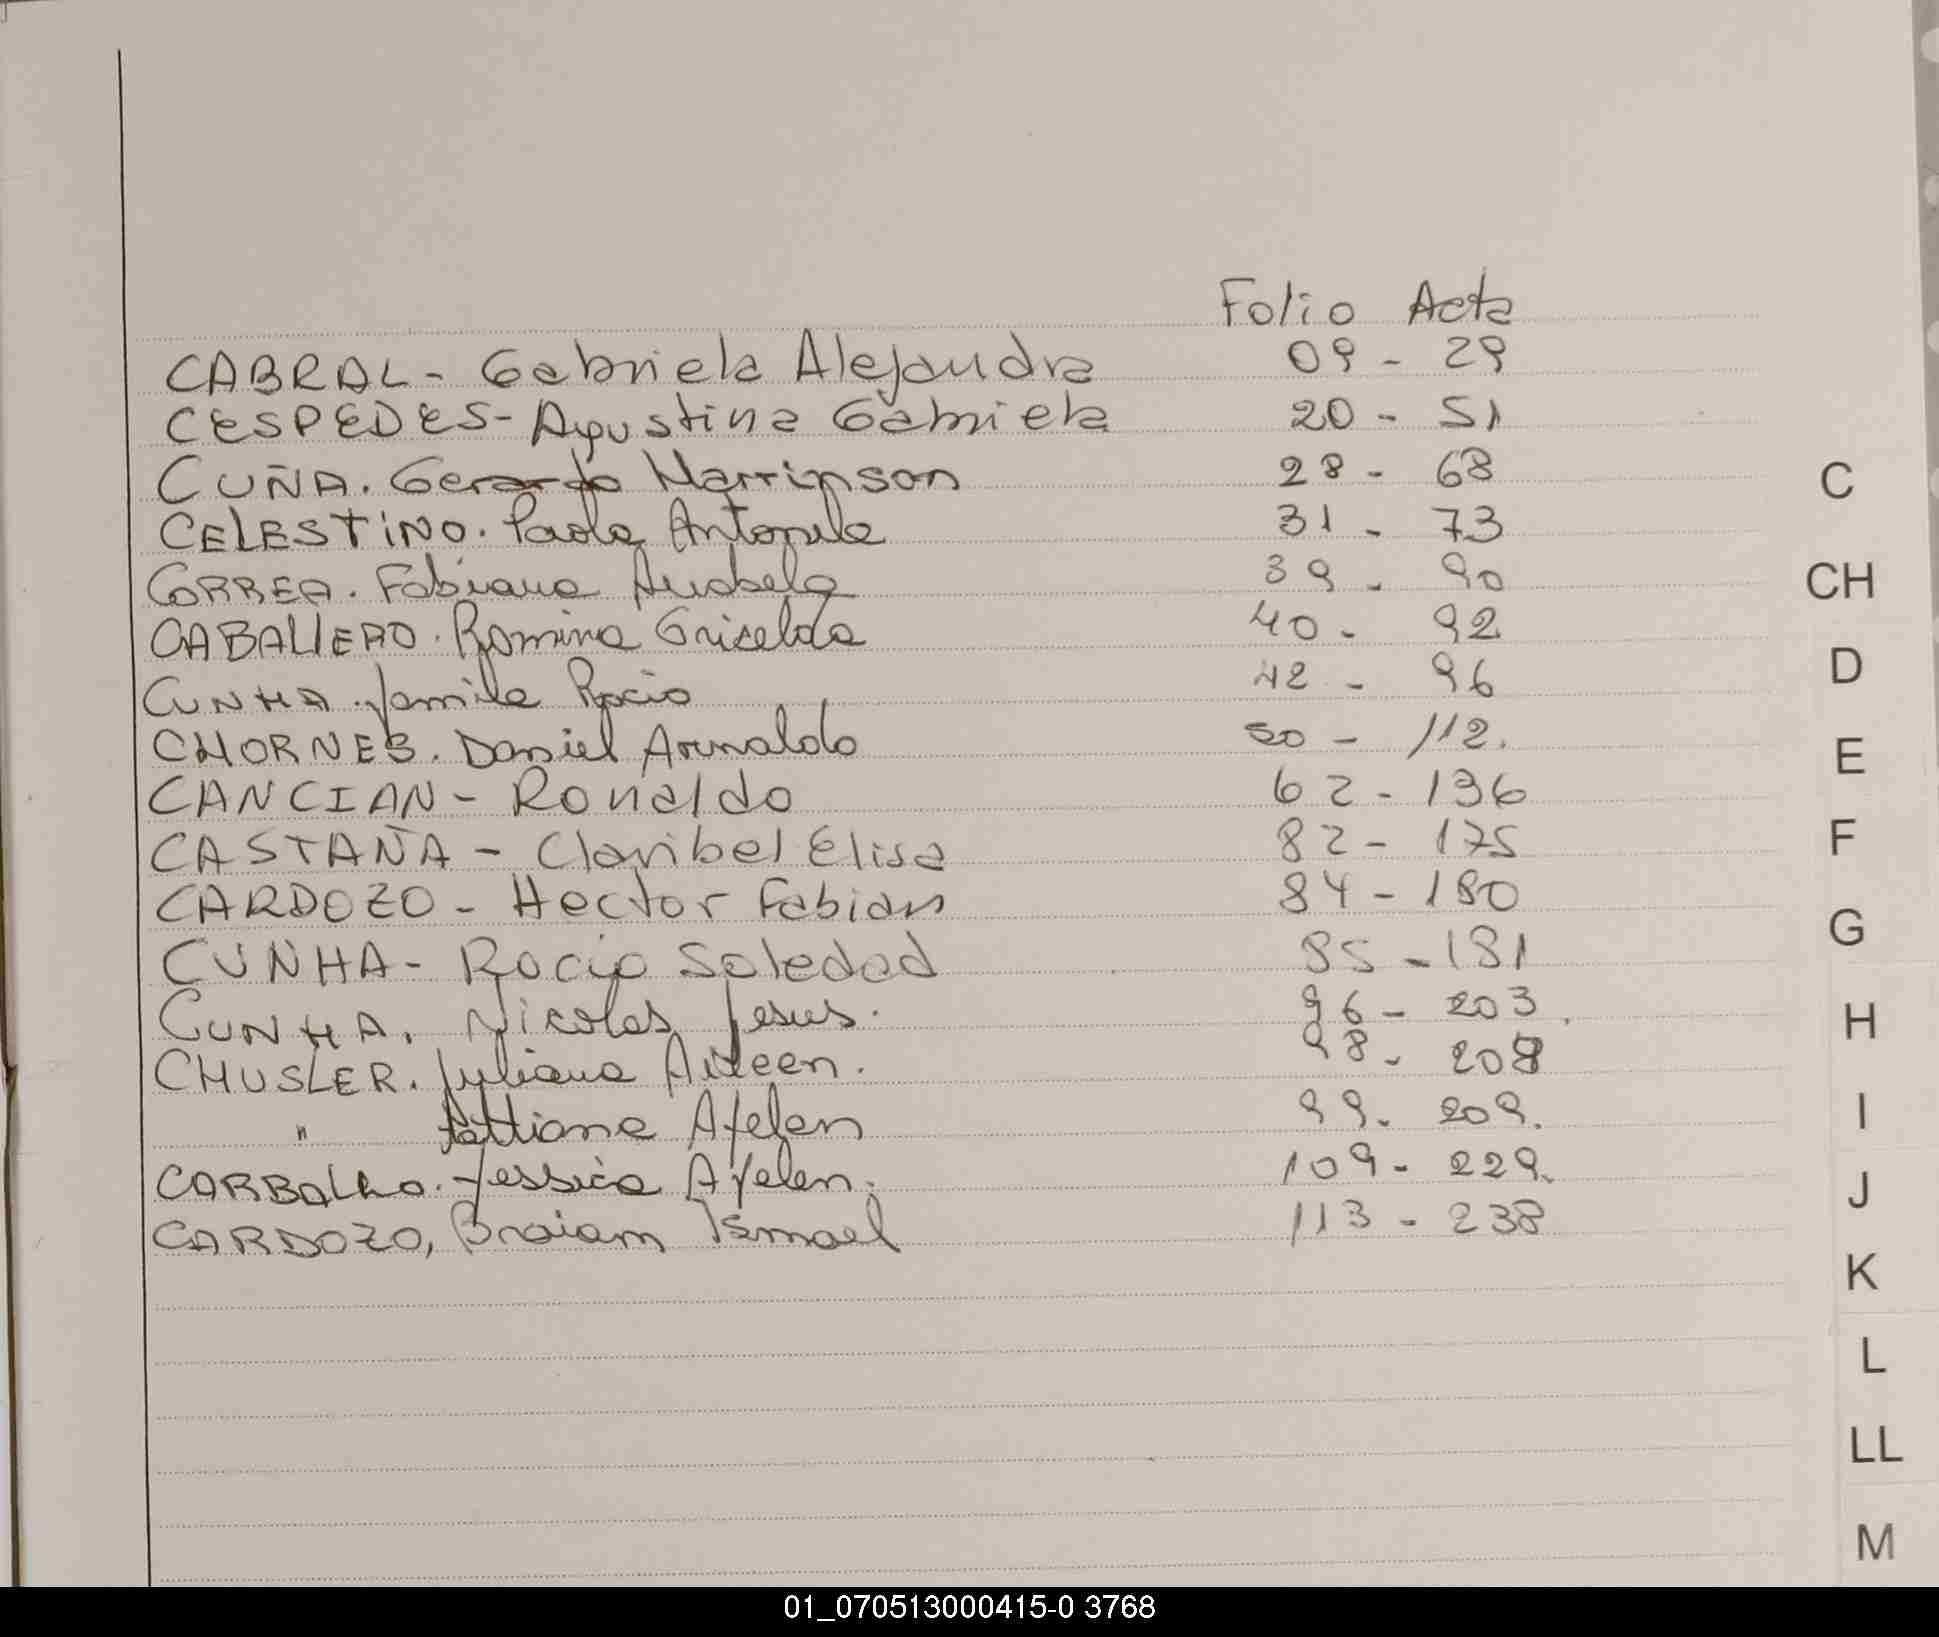 Folio Acta
CABRAL - Gabriela Alejandra 09 - 29
CESPEDES - Agustina Gabriela 20 - 51
CUÑA. Gerardo Harrinson 28 - 68
CELESTINO. Paola Antonela 31 - 73
CORREA. Fabiana Anabela 39 - 90
CABALLERO. Romina Griselda 40 - 92
CUNHA. Jamila Rocio 42 - 96
CHORNES. Daniel Arnaldo 50 - 112.
CANCIAN - Ronaldo 62 - 136
CASTAÑA - Claribel Elisa 82 - 175
CARDOZO - Hector Fabian 84 - 180
CUNHA - Rocio Soledad 85 - 181
CUNHA. Nicolas Jesus. 96 - 203.
CHUSLER. Juliana Aileen. 98 - 208
" Tattiana Ayelen 99. 209.
CARBALHO. Jessica Ayelen. 109 - 229.
CARDOZO, Braiam Ismael 113 - 238
C
CH
D
E
F
G
H
I
J
K
L
LL
M
01_070513000415-0 3768